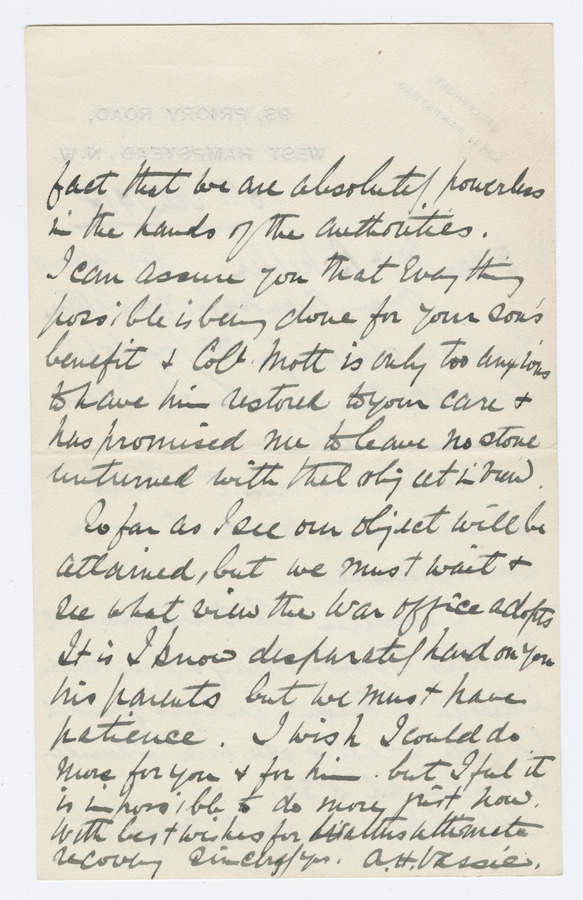 fact that we are absolutely powerless
in the hands of the authorities.
I can assure you that Everything
possible is being done for your son's
benefit & Col. Mott is only too anxious
to have him restored to your care &
has promised me to leave no stone
unturned with that object in view.
So far as I see our object will be
attained, but we must wait &
see what view the War office adopts
It is I know desparately hard on you
his parents but we must have
patience. I wish I could do
more for you & for him. but I feel it
is impossible to do more just now.
With best wishes for ultimate
recovery Sincerely yrs. A.H. Vassie.
93, PRIORY ROAD,
WEST HAMPSTEAD, N.W.